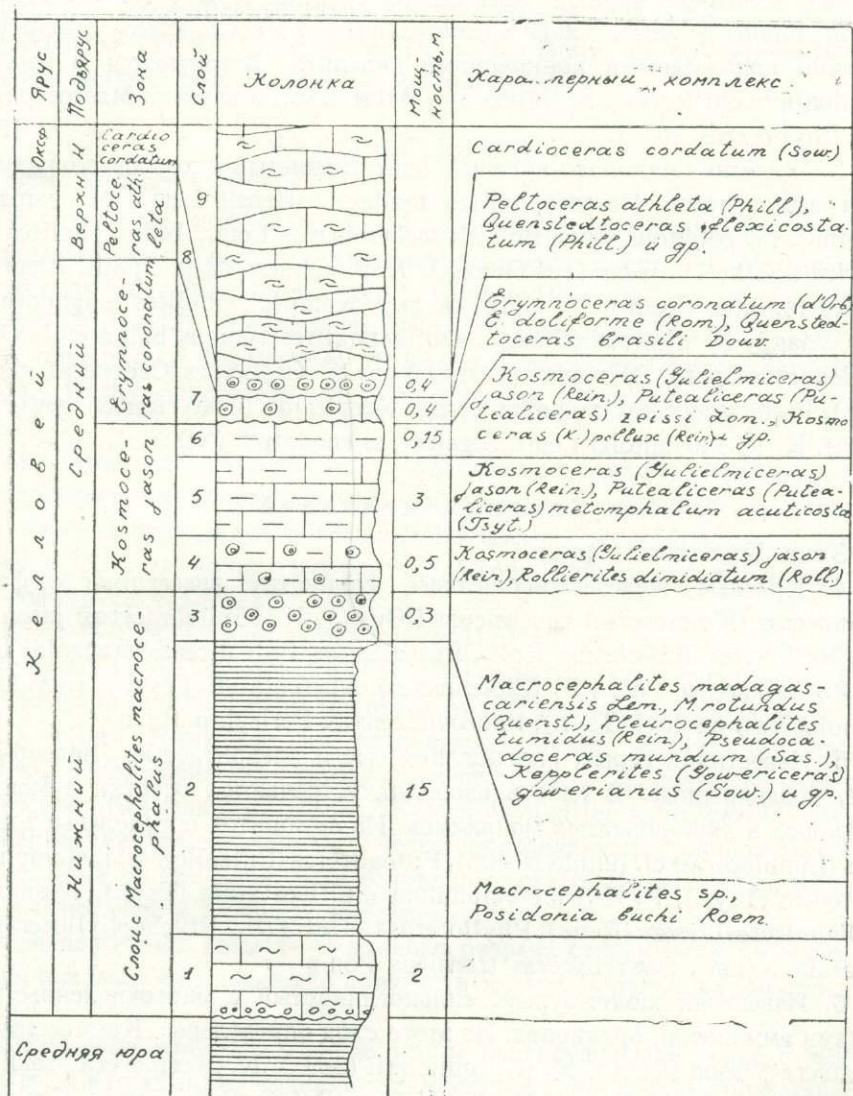 Ярус
Подъярус
Зона
Слой
Колонка
Мощ-
ность, м
комплекс
Оксф.
Келловей
Верхний
Средний
Нижний
Cardio
ceras
cordatum
Peltoce-
ras ath-
leta
Erymnoce-
ras coronatum
Kosmoce-
ras jason
Слои с Macrocephalites macroce-
phalus
Средняя юра
9
8
7
6
5
4
3
2
1
0,4
0,4
0,15
3
0,5
0,3
15
2
Cardioceras cordatum (Sow.)
Peltoceras athleta (Phill),
Quenstedtoceras flexicosta-
tum (Phill.) и др.
Erymnoceras coronatum (d'Orb,
E. doliforme (Rom.), Quensted-
toceras brasili Douv.
Kosmoceras (Gulielmiceras)
jason (Rein.), Putealiceras (Pu-
tealiceras) zeissi Lom., Kosmo
ceras (K.) pollux (Rein) и др.
Kosmoceras (Gulielmiceras)
jason (Rein.), Putealiceras (Putea-
liceras) metomphalum acuticosta
(Tsyt.)
Kosmoceras (Gulielmiceras) jason
(Rein), Rollierites dimidiatum (Roll.)
Macrocephalites madagas-
cariensis Lem., M. rotundus
(Quenst.), Pleurocephalites
tumidus (Rein.), Pseudoca-
doceras mundum (Sas.),
Kepplerites (Gowericeras)
gowerianus (Sow.) и др.
Macrocephalites sp.,
Posidonia buchi Roem.